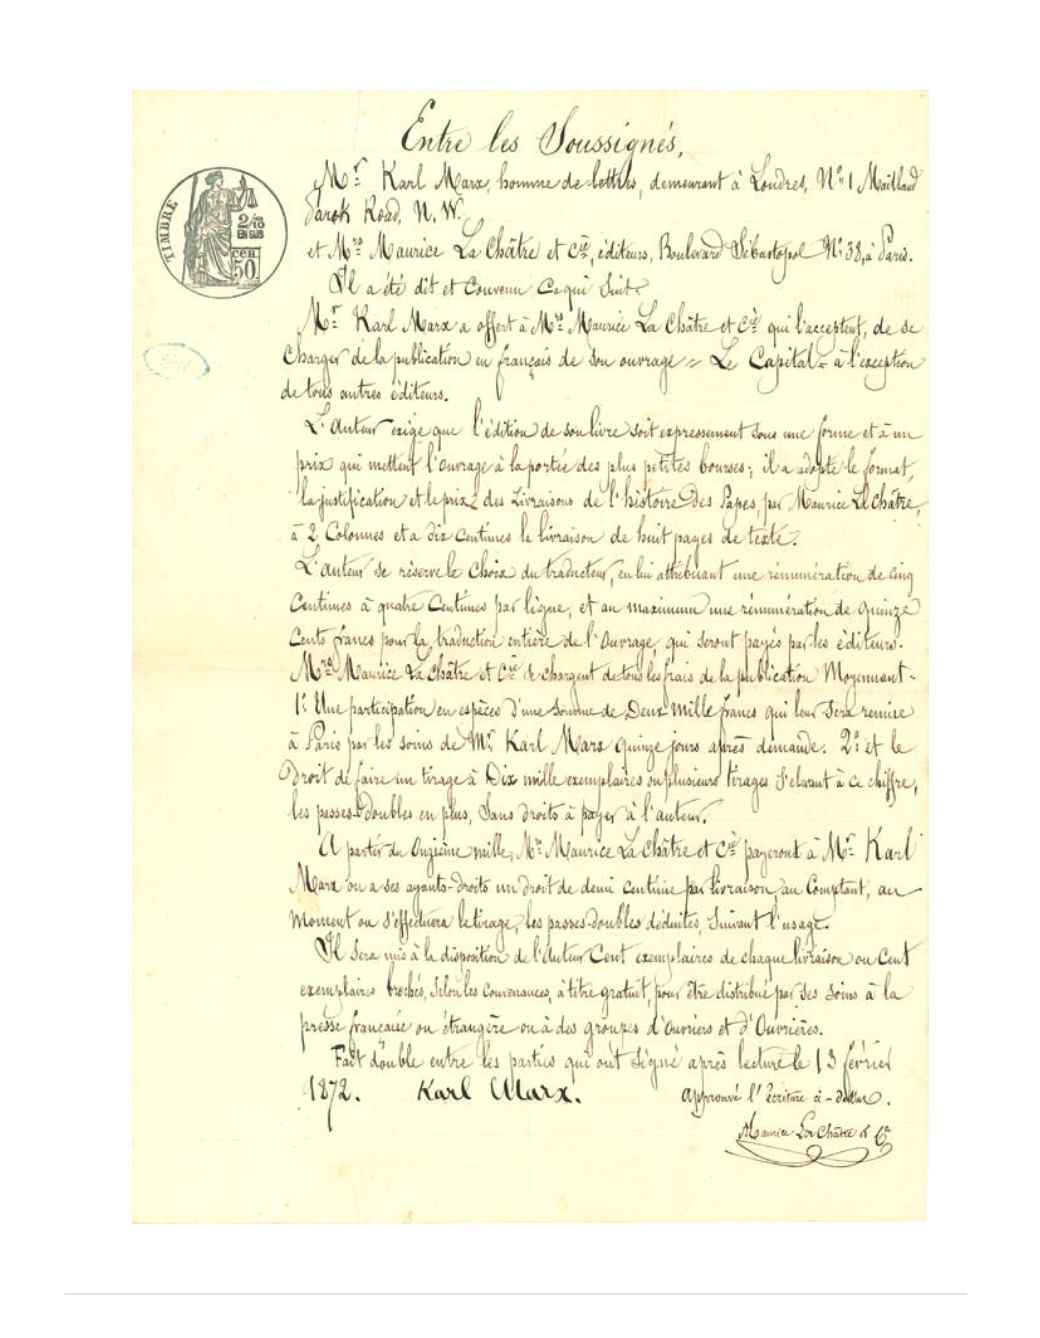 Entre les Soussignés,
TIMBRE
2/10
EN SUS
50
cen
Mr. Karl Marx, homme de lettres, demeurant à Londres, No. 1 Maitland
Parok Road, N. W.
et Mrs. Maurice La Châtre et Cie, éditeurs, Boulevard Sébastopol No. 38, à Paris.
Il a été dit et Convenu Ce qui Suit.
Mr. Karl Marx a offert à Mrs. Maurice La Châtre et Cie qui l'acceptent, de se
Charger de la publication en français de son ouvrage = Le Capital = à l'exception
de tous autres éditeurs.
L'Auteur exige que l'édition de son livre soit expressement sous une forme et à un
prix qui mettent l'ouvrage à la portée des plus petites bourses; il a adopté le format,
la justification et le prix des Livraisons de l'histoire des Papes, par Maurice La Châtre,
à 2 Colonnes et a dix Centimes la livraison de huit pages de texte.
L'auteur se réserve le Choix du traducteur, en lui attribuant une rémunération de cinq
Centimes à quatre Centimes par ligne, et au maximum une rémunération de quinze
Cents francs pour la traduction entière de l'Ouvrage, qui seront payés par les éditeurs.
Mrs. Maurice La Châtre et Cie se chargent de tous les frais de la publication Moyennant =
1o. Une participation en espèces d'une Somme de Deux Mille francs qui leur Sera remise
à Paris par les soins de Mr. Karl Marx quinze jours après demande. 2o. et le
Droit de faire un tirage à Dix mille exemplaires ou plusieurs tirages S'élevant à ce chiffre,
les passes-doubles en plus, Sans droits à payer à l'auteur.
A partir du Onzième mille, Mrs. Maurice La Châtre et Cie payeront à Mr. Karl
Marx ou a ses ayants-droits un droit de demi centime par livraison, au Comptant, au
Moment ou S'effectuera le tirage, les passes-doubles déduites, Suivant l'usage.
Il Sera mis à la disposition de l'Auteur Cent exemplaires de chaque livraison ou Cent
exemplaires brochés, Selon les Convenances, à titre gratuit, pour être distribué par Ses Soins à la
presse française ou étrangère ou à des groupes d'Ouvriers et d'Ouvrières.
Fait double entre les parties qui ont Signé après lecture le 13 février
1872. Karl Marx. approuvé l'écriture ci-dessus.
Maurice La Châtre & Cie